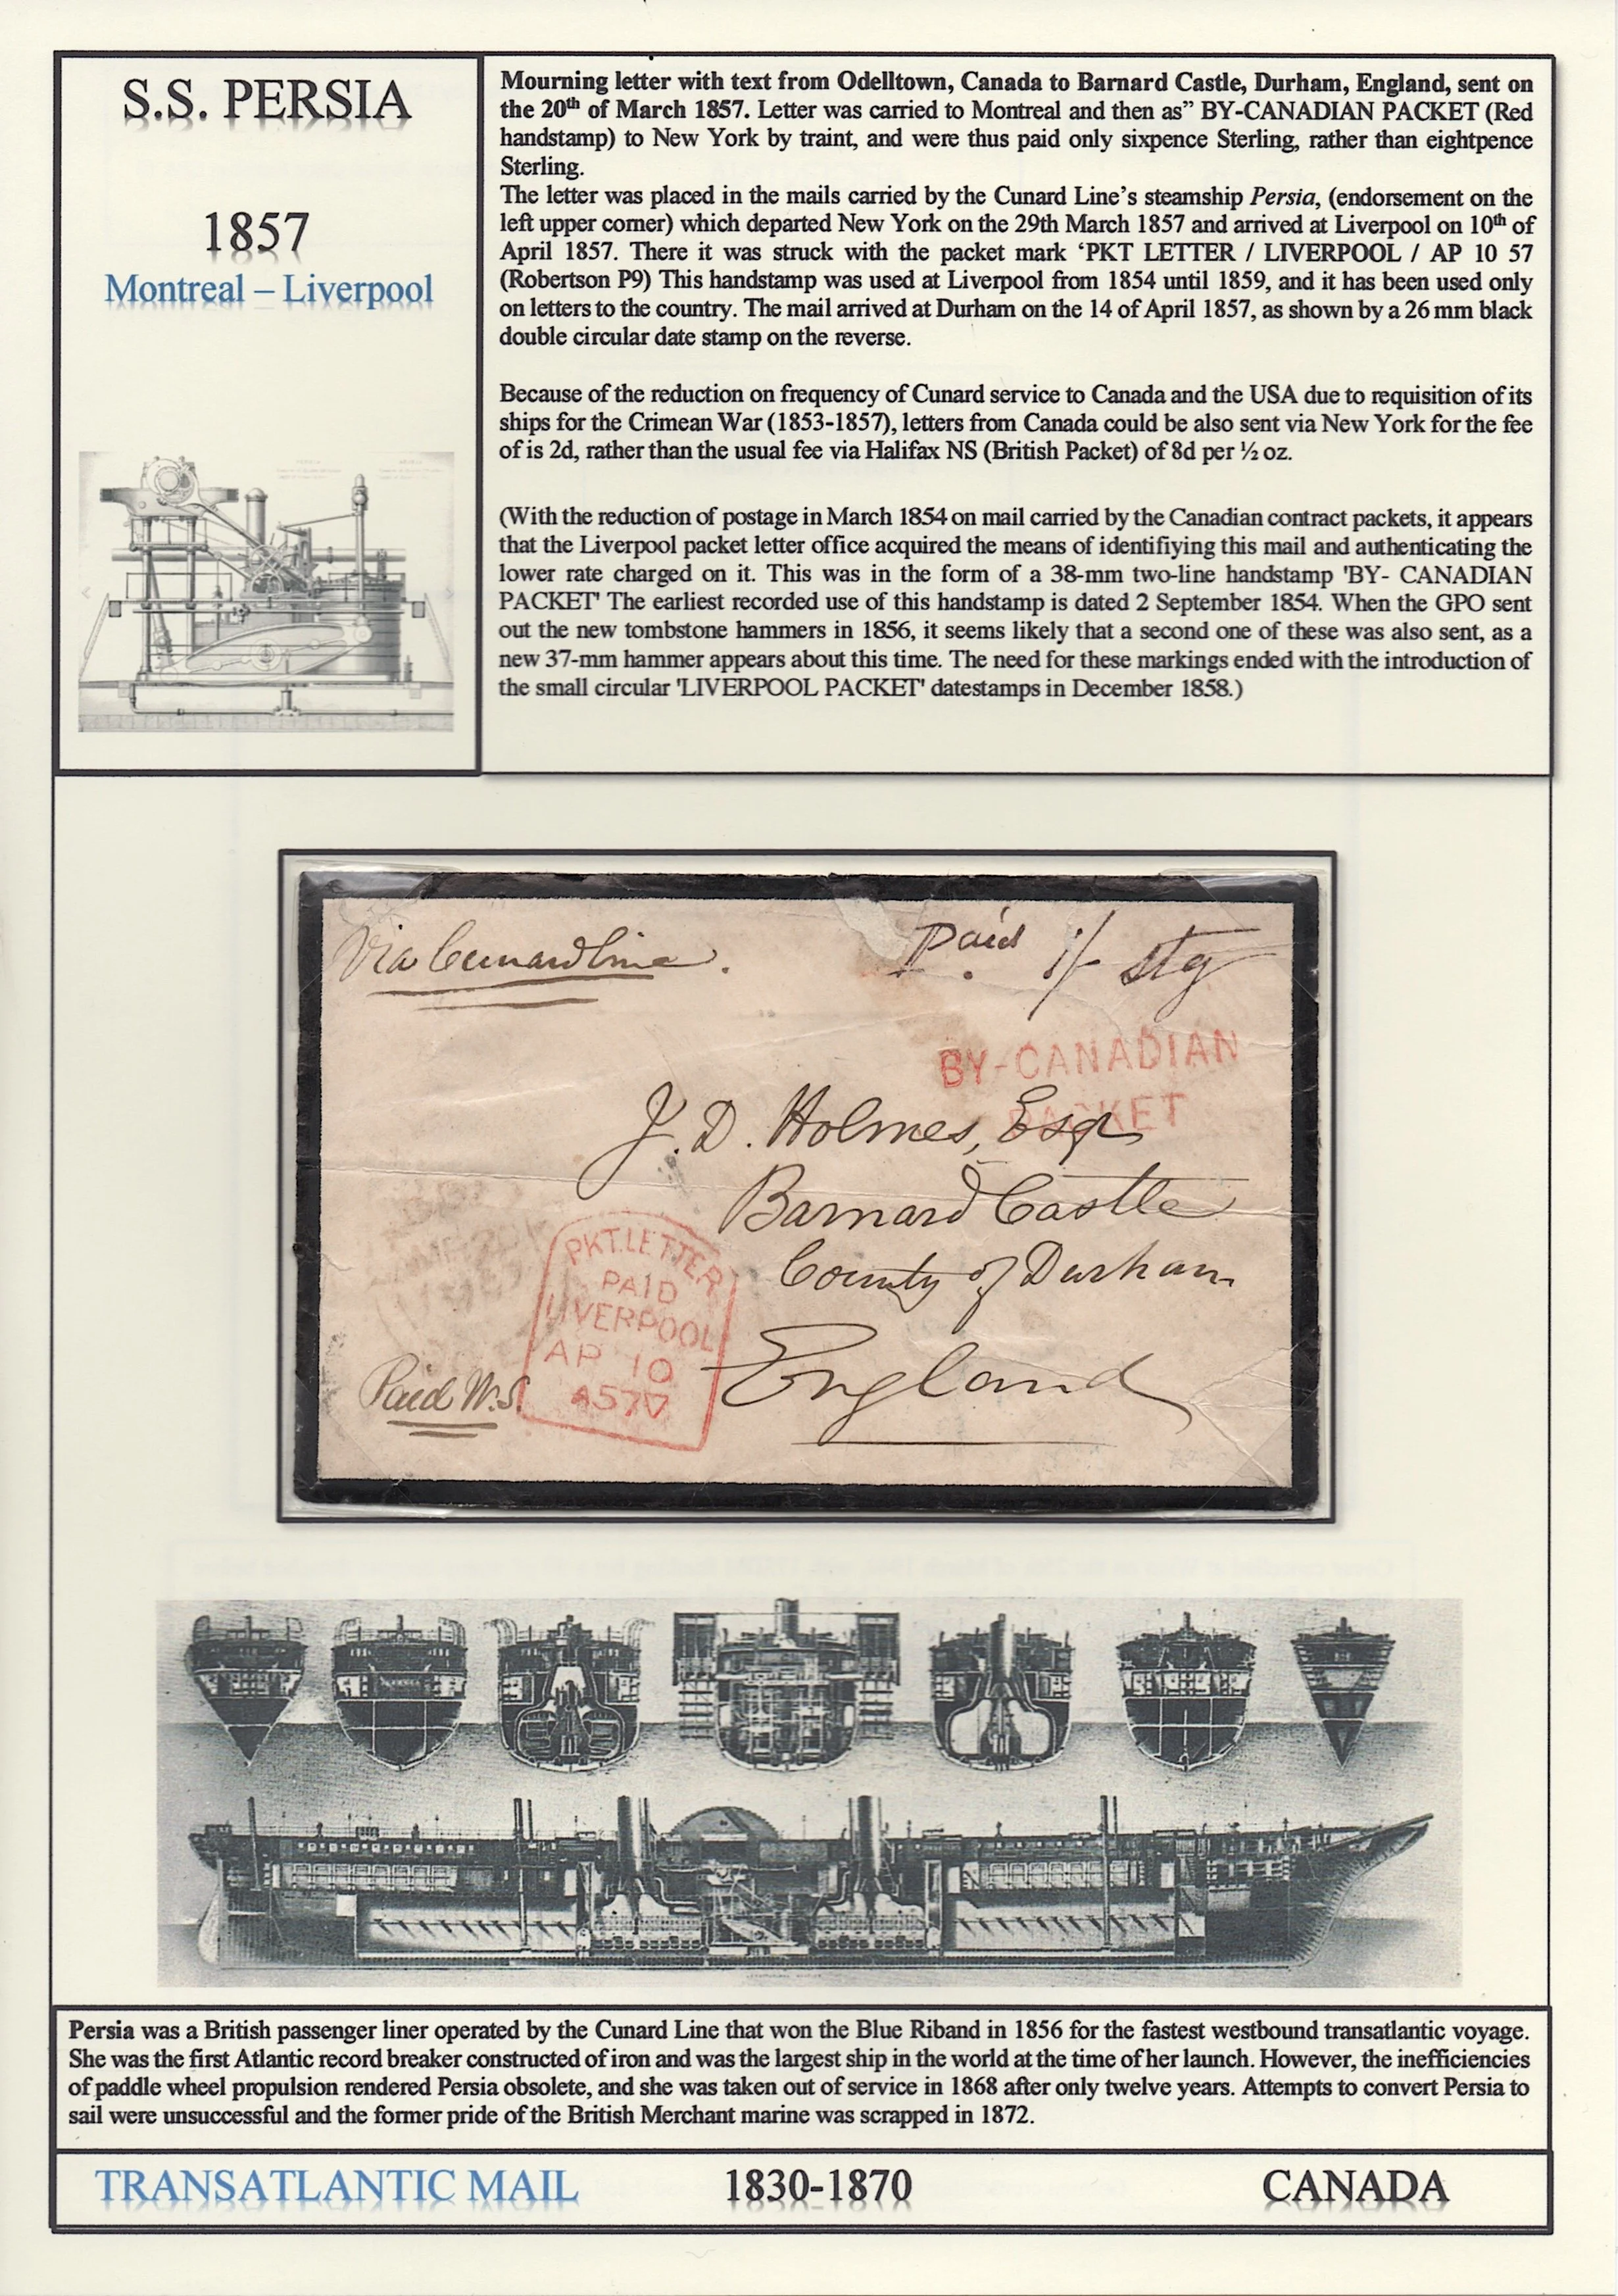 S.S. PERSIA
1857
Montreal – Liverpool
Mourning letter with text from Odelltown, Canada to Barnard Castle, Durham, England, sent on
the 20th of March 1857. Letter was carried to Montreal and then as” BY-CANADIAN PACKET (Red
handstamp) to New York by traint, and were thus paid only sixpence Sterling, rather than eightpence
Sterling.
The letter was placed in the mails carried by the Cunard Line’s steamship Persia, (endorsement on the
left upper corner) which departed New York on the 29th March 1857 and arrived at Liverpool on 10th of
April 1857. There it was struck with the packet mark ‘PKT LETTER / LIVERPOOL / AP 10 57
(Robertson P9) This handstamp was used at Liverpool from 1854 until 1859, and it has been used only
on letters to the country. The mail arrived at Durham on the 14 of April 1857, as shown by a 26 mm black
double circular date stamp on the reverse.
Because of the reduction on frequency of Cunard service to Canada and the USA due to requisition of its
ships for the Crimean War (1853-1857), letters from Canada could be also sent via New York for the fee
of is 2d, rather than the usual fee via Halifax NS (British Packet) of 8d per ½ oz.
(With the reduction of postage in March 1854 on mail carried by the Canadian contract packets, it appears
that the Liverpool packet letter office acquired the means of identifiying this mail and authenticating the
lower rate charged on it. This was in the form of a 38-mm two-line handstamp 'BY- CANADIAN
PACKET' The earliest recorded use of this handstamp is dated 2 September 1854. When the GPO sent
out the new tombstone hammers in 1856, it seems likely that a second one of these was also sent, as a
new 37-mm hammer appears about this time. The need for these markings ended with the introduction of
the small circular 'LIVERPOOL PACKET' datestamps in December 1858.)
Via Cunard Line.
Paid 1/- stg
BY-CANADIAN
PACKET
J. D. Holmes, Esqr
Barnard Castle
County of Durham
England
PKT.LETTER
PAID
LIVERPOOL
AP 10
A57
Paid W.S.
Persia was a British passenger liner operated by the Cunard Line that won the Blue Riband in 1856 for the fastest westbound transatlantic voyage.
She was the first Atlantic record breaker constructed of iron and was the largest ship in the world at the time of her launch. However, the inefficiencies
of paddle wheel propulsion rendered Persia obsolete, and she was taken out of service in 1868 after only twelve years. Attempts to convert Persia to
sail were unsuccessful and the former pride of the British Merchant marine was scrapped in 1872.
TRANSATLANTIC MAIL 1830-1870 CANADA